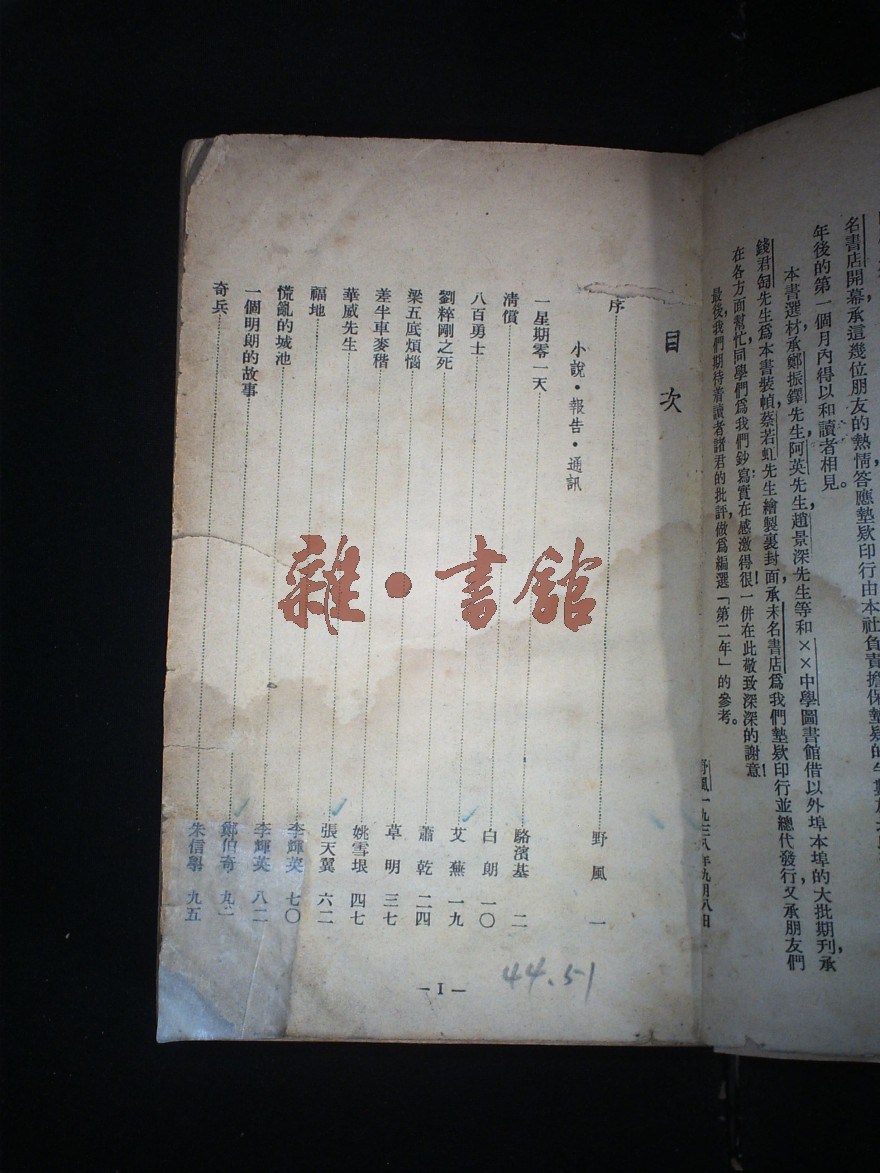 名書店開幕承這幾位朋友的熱情答應墊欵印行由本社負責擔保墊欵的
年後的第一個月內得以和讀者相見。
本書選材承鄭振鐸先生,阿英先生,趙景深先生等和××中學圖書館借以外埠本埠的大批期刊,承
錢君匋先生爲本書裝幀,蔡若虹先生繪製裏封面,承未名書店爲我們墊欵印行並總代發行,又承朋友們
在各方面幫忙,同學們爲我們鈔寫,實在感激得很!一併在此敬致深深的謝意!
最後,我們期待着讀者諸君的批評,做爲編選「第二年」的參考。
野風一九三八年九月八日
目次
序 野風 一
小說•報告•通訊
一星期零一天 駱濱基 二
清償 白朗 一〇
八百勇士 艾蕪 一九
劉粹剛之死 蕭乾 二四
梁五底煩惱 草明 三七
差半車麥稭 姚雪垠 四七
華威先生 張天翼 六二
福地 李輝英 七〇
慌亂的城池 李輝英 八二
一個明朗的故事 鄭伯奇 九二
奇兵 朱信學 九五
— I —
44.51
雜•書館